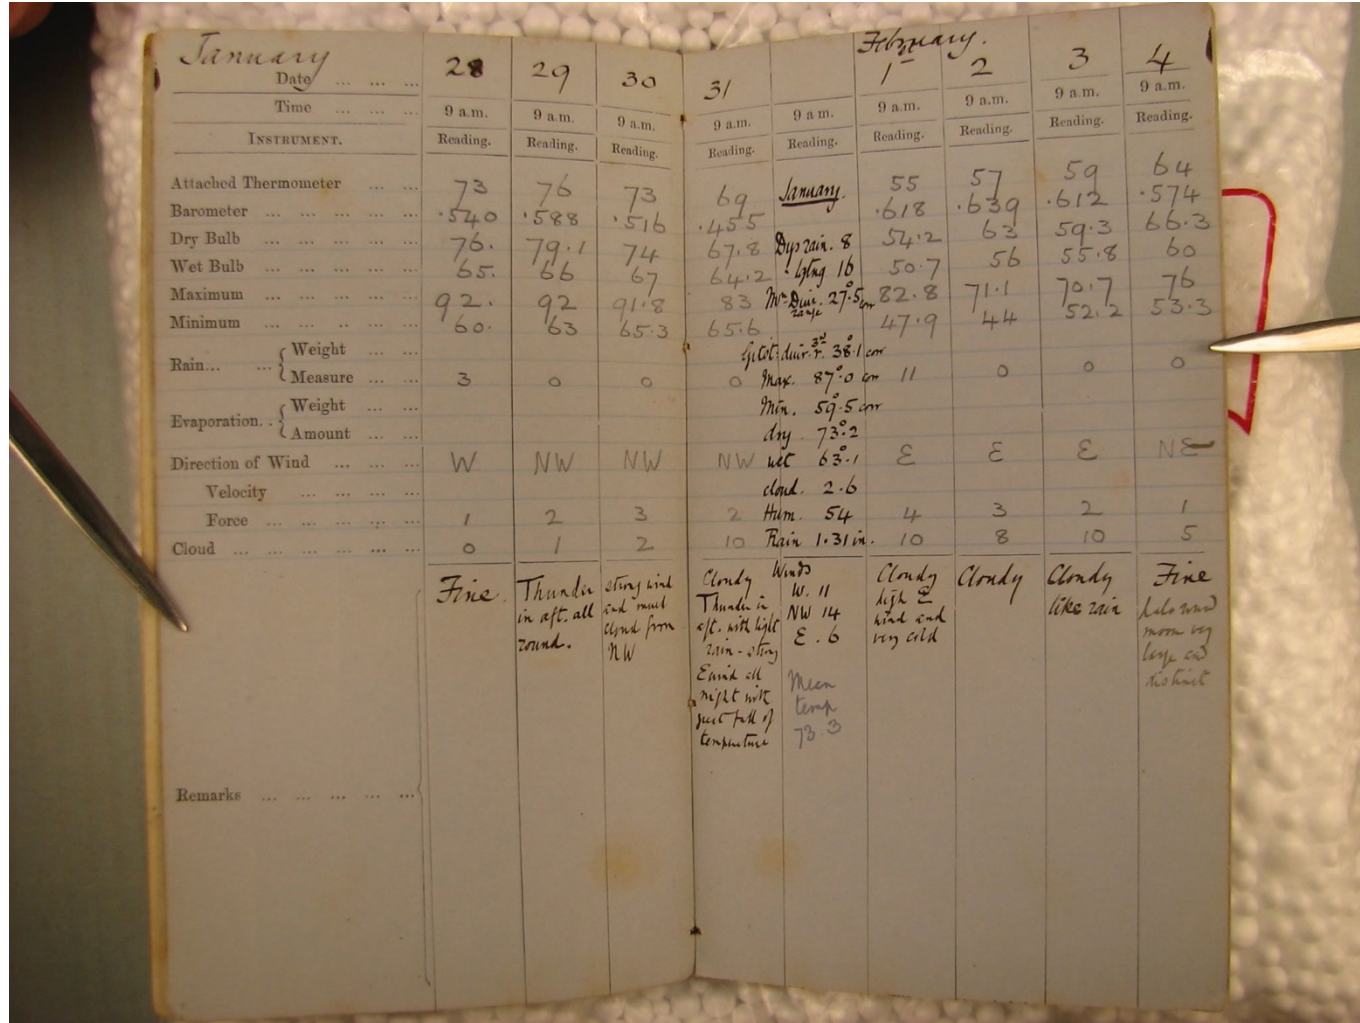 January February.
Date ... ... ... 28 29 30 31 1st 2 3 4
Time ... ... 9 a.m. 9 a.m. 9 a.m. 9 a.m. 9 a.m. 9 a.m. 9 a.m. 9 a.m. 9 a.m.
INSTRUMENT. Reading. Reading. Reading. Reading. Reading. Reading. Reading. Reading. Reading.
Attached Thermometer ... ... 73 76 73 69 January. 55 57 59 64
Barometer ... ... ... ... ... .540 .588 .516 .455 .618 .639 .612 .574
Dry Bulb ... ... ... ... ... 76. 79.1 74 67.8 Dys rain. 8 54.2 63 59.3 66.3
Wet Bulb ... ... ... ... ... 65. 66 67 64.2 " lgtng 16 50.7 56 55.8 60
Maximum ... ... ... ... ... 92. 92 91.8 83 Mn Diur. range 27°.5 corr 82.8 71.1 70.7 76
Minimum ... ... ... ... ... 60. 63 65.3 65.6 47.9 44 52.2 53.3
Rain... ... { Weight ... ... Gtst. diur. r. 3rd 38°.1 corr
Measure ... ... 3 0 0 0 Max. 87°.0 corr 11 0 0 0
Evaporation. . { Weight ... ... Min. 59°.5 corr
Amount ... ... dry. 73°.2
Direction of Wind ... ... ... W NW NW NW wet 63°.1 E E E NE
Velocity ... ... ... ... cloud. 2.6
Force ... ... ... ... ... 1 2 3 2 Hum. 54 4 3 2 1
Cloud ... ... ... ... ... ... 0 1 2 10 Rain 1.31 in. 10 8 10 5
Remarks ... ... ... ... ...
Fine.
Thunder
in aft. all
round.
strong wind
and much
cloud from
NW
Cloudy
Thunder in
aft. with light
rain - strong
E wind all
night with
great fall of
temperature
Winds
W. 11
NW 14
E. 6
Mean
temp
73.3
Cloudy
high E
wind and
very cold
Cloudy
Cloudy
like rain
Fine
halo round
moon very
large and
distinct